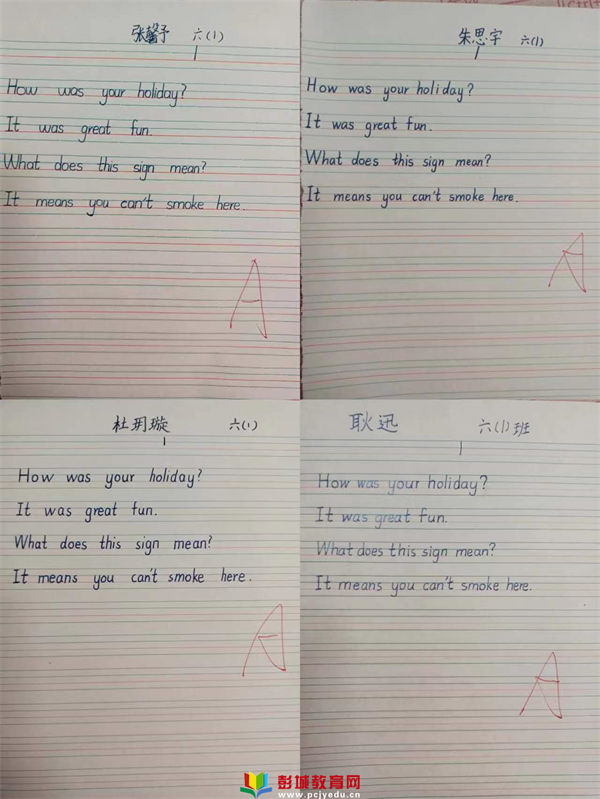 张馨予 六(1)
How was your holiday?
It was great fun.
What does this sign mean?
It means you can't smoke here.
A
朱思宇 六(1)
How was your holiday?
It was great fun.
What does this sign mean?
It means you can't smoke here.
A
杜玥璇 六(1)
How was your holiday?
It was great fun.
What does this sign mean?
It means you can't smoke here.
A
耿迅 六(1)班
How was your holiday?
It was great fun.
What does this sign mean?
It means you can't smoke here.
A
彭城教育网
www.pcjyedu.cn